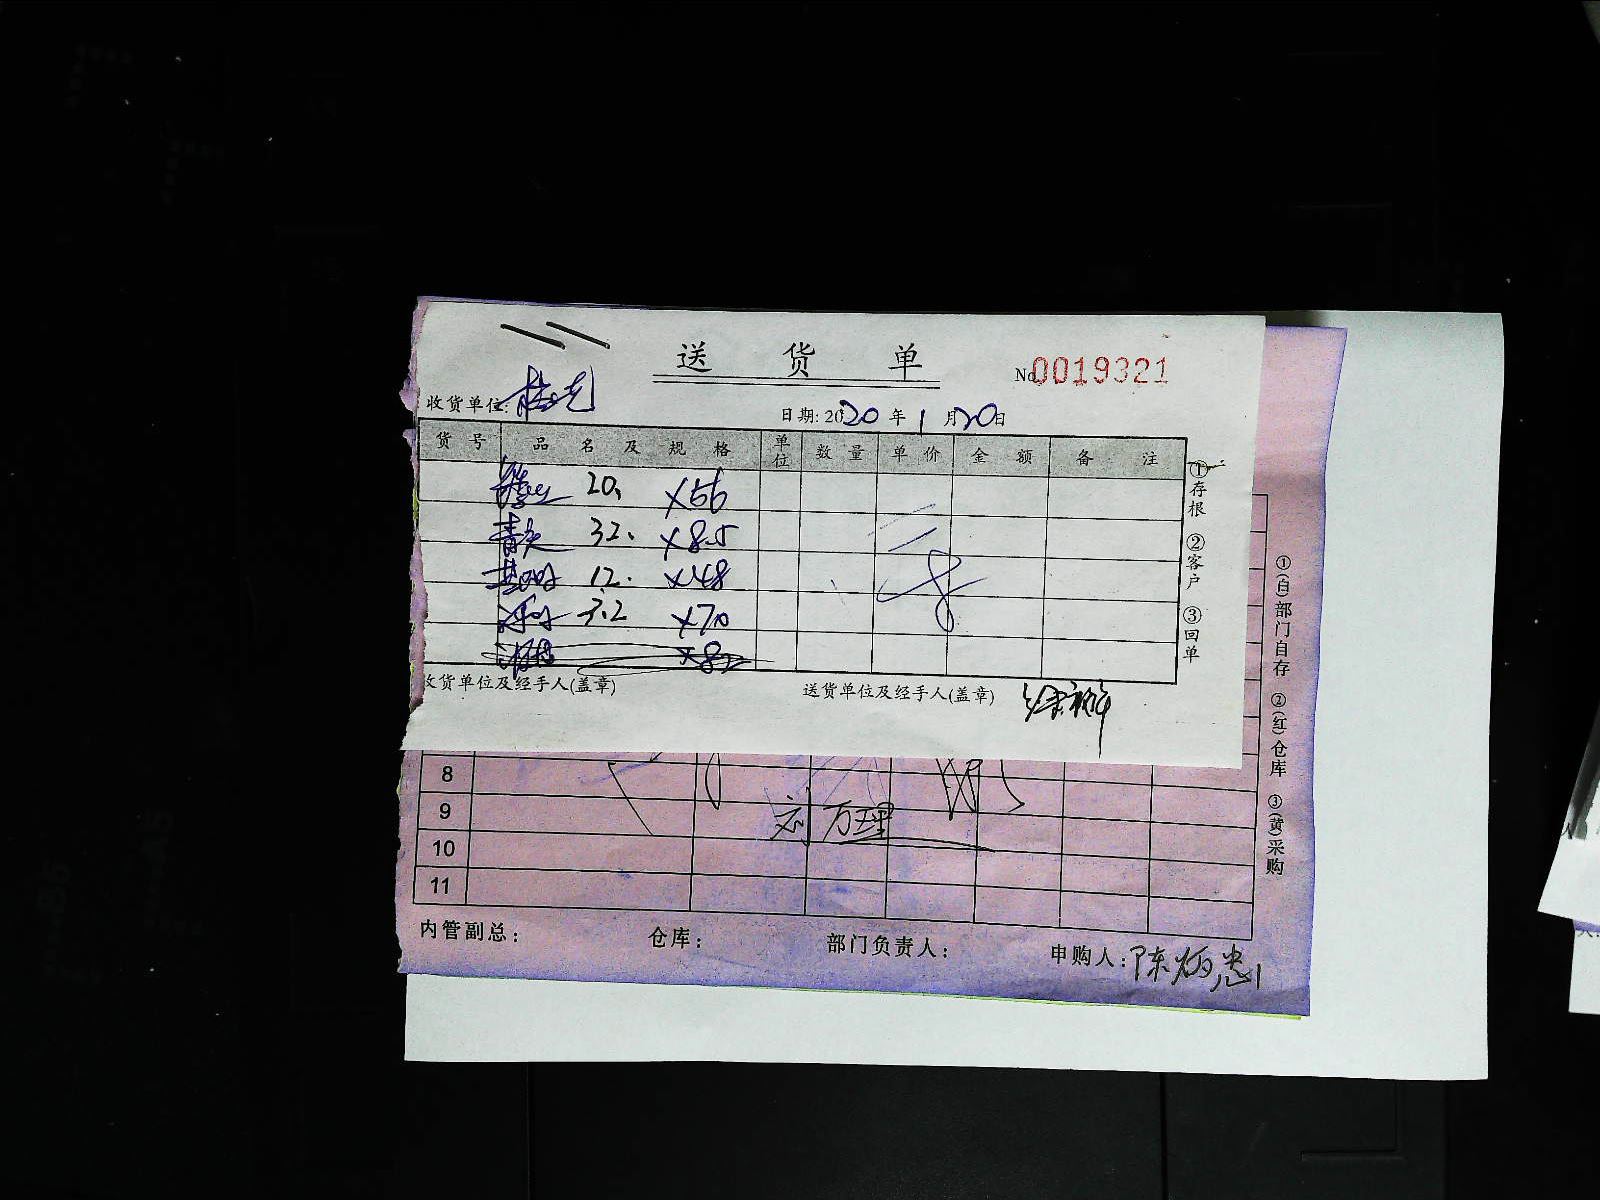 送 货 单
No 0019321
收货单位:
日期: 2020 年 1 月 20 日
货 号 品 名 及 规 格 单位 数 量 单 价 金 额 备 注
20、 ×56
32、 ×8.5
12. ×48
3.2 ×70
×82
收货单位及经手人(盖章) 送货单位及经手人(盖章)
①存根 ②客户 ③回单
8
9
万理
10
11
①(白)部门自存 ②(红)仓库 ③(黄)采购
内管副总: 仓库: 部门负责人: 申购人:陈炳忠